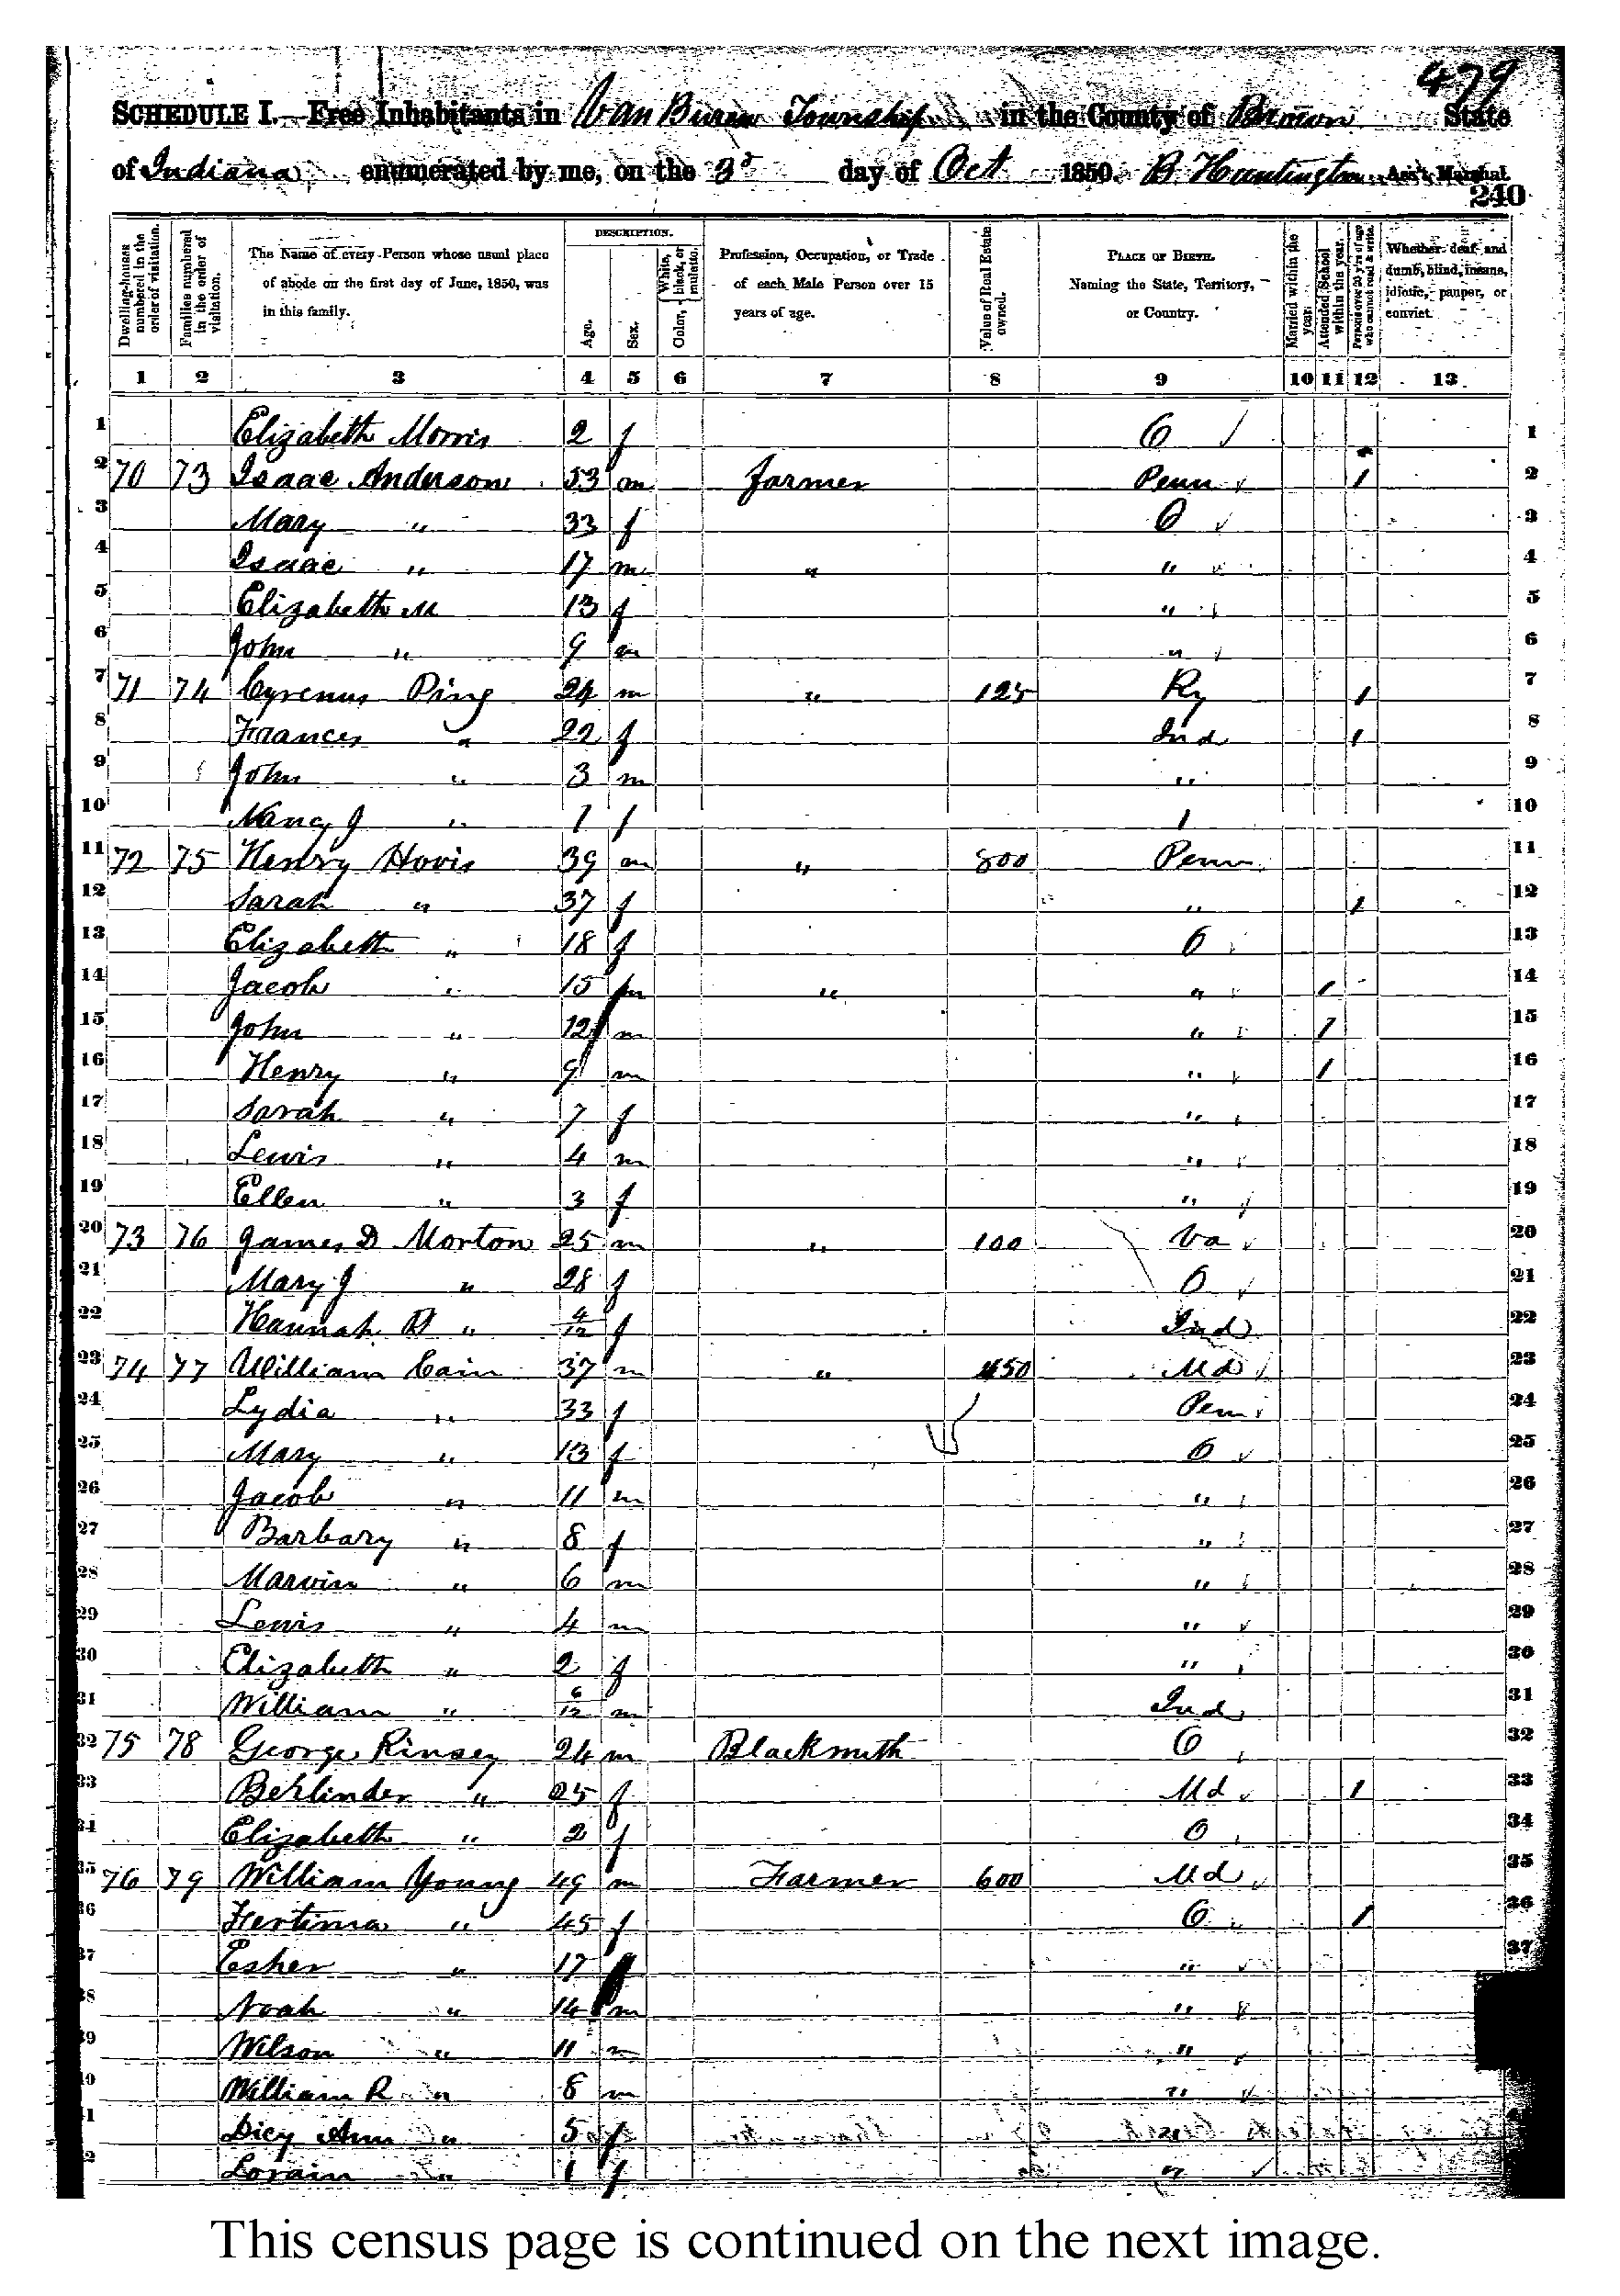 479
SCHEDULE I.—Free Inhabitants in Van Buren Township in the County of Brown State
of Indiana, enumerated by me, on the 3d day of Oct 1850. B Huntington Ass't Marshal.
240
Dwelling-houses numbered in the order of visitation.
Families numbered in the order of visitation.
The Name of every Person whose usual place of abode on the first day of June, 1850, was in this family.
DESCRIPTION.
Age.
Sex.
Color, White, black, or mulatto.
Profession, Occupation, or Trade of each Male Person over 15 years of age.
Value of Real Estate owned.
PLACE OF BIRTH. Naming the State, Territory, or Country.
Married within the year.
Attended School within the year.
Persons over 20 y'rs of age who cannot read & write.
Whether deaf and dumb, blind, insane, idiotic, pauper, or convict.
1 2 3 4 5 6 7 8 9 10 11 12 13
1 Elizabeth Morris 2 f O 1
2 70 73 Isaac Anderson 53 m farmer Penn 1 2
3 Mary " 33 f O 3
4 Isaac " 17 m " " 4
5 Elizabeth M 13 f " 5
6 John " 9 m " 6
7 71 74 Cyrenus Ping 24 m " 125 Ky 1 7
8 Frances " 22 f Ind 1 8
9 John " 3 m " 9
10 Nancy J " 1 f 1 10
11 72 75 Henry Hovis 39 m " 800 Penn 11
12 Sarah " 37 f " 1 12
13 Elizabeth " 18 f O 13
14 Jacob " 15 m " " 1 14
15 John " 12 m " 1 15
16 Henry " 9 m " 1 16
17 Sarah " 7 f " 17
18 Lewis " 4 m " 18
19 Ellen " 3 f " 19
20 73 76 James D Morton 25 m " 100 Va 20
21 Mary J " 28 f O 21
22 Hannah " 4/12 f Ind 22
23 74 77 William Cain 37 m " 450 Md 23
24 Lydia " 33 f Pen 24
25 Mary " 13 f O 25
26 Jacob " 11 m " 26
27 Barbary " 8 f " 27
28 Marvin " 6 m " 28
29 Lewis " 4 m " 29
30 Elizabeth " 2 f " 30
31 William " 6/12 m Ind 31
32 75 78 George Kinsey 24 m Blacksmith O 32
33 Behlinder " 25 f Md 1 33
34 Elizabeth " 2 f O 34
35 76 79 William Young 49 m Farmer 600 Md 35
36 Fertima " 45 f O 1 36
37 Esher " 17 f " 37
38 Noah " 14 m "
39 Wilson " 11 m "
William R " 8 m "
Dicy Ann " 5 f
Lorain " 1 f "
This census page is continued on the next image.